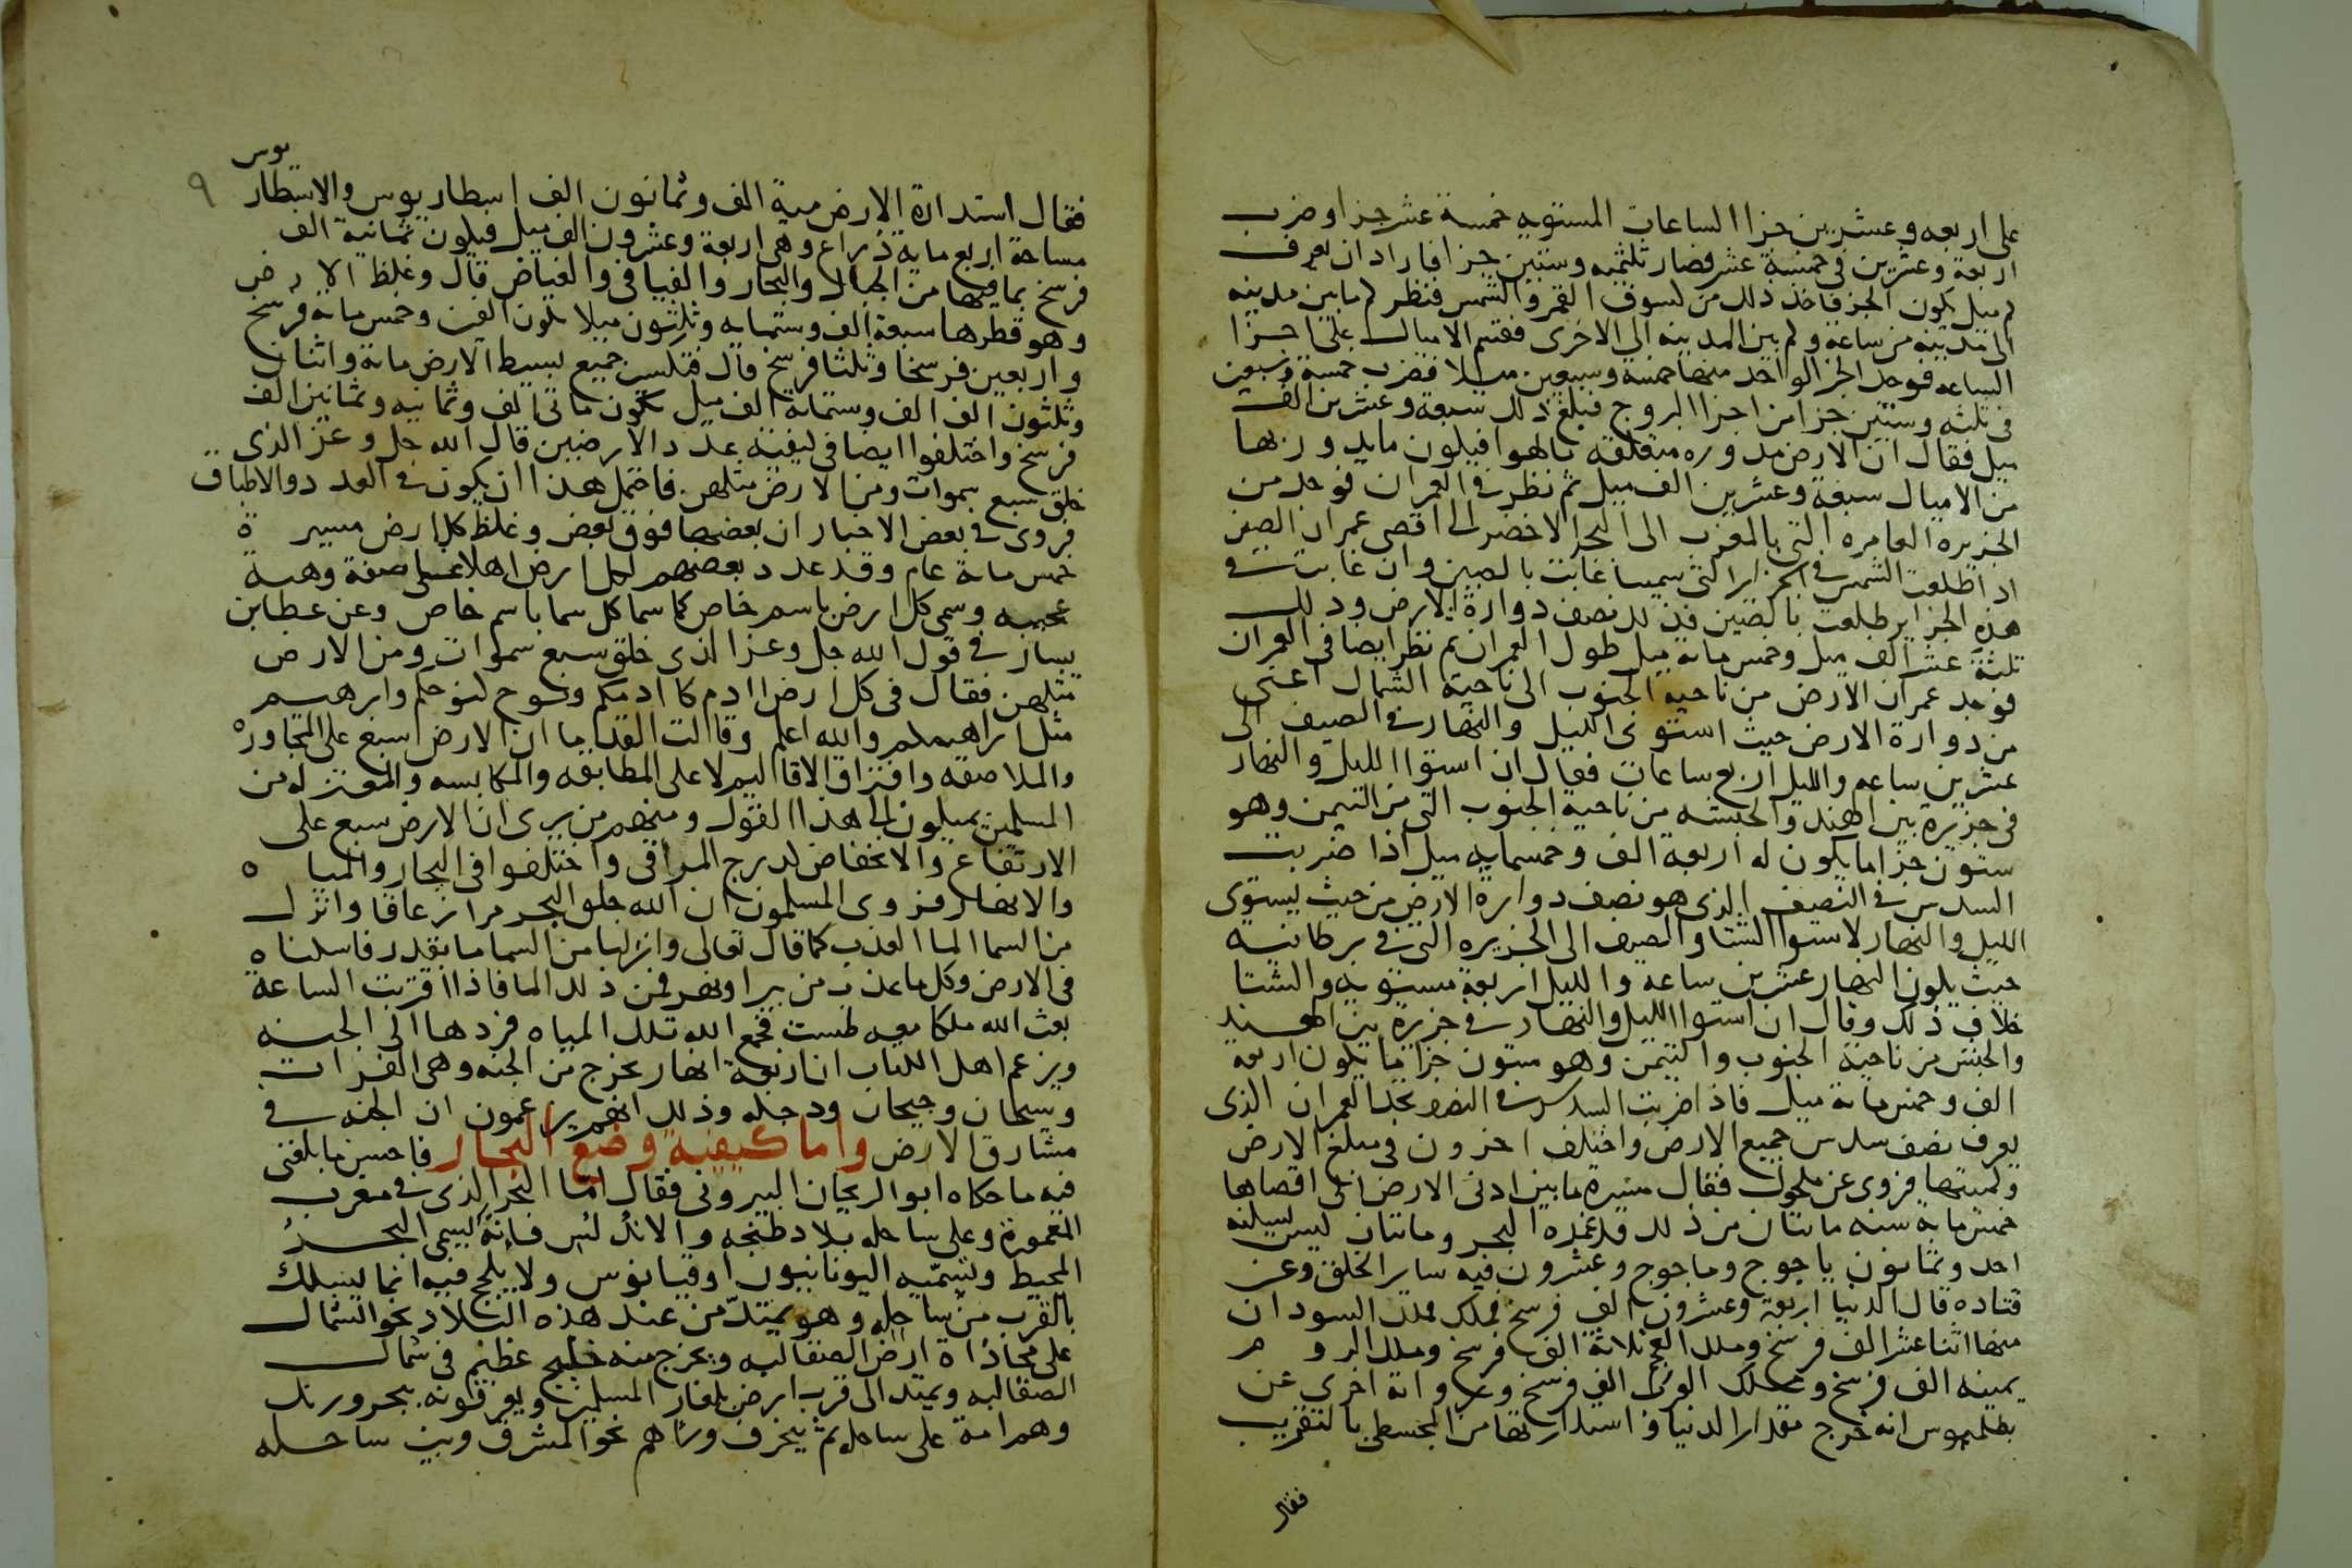 على اربعه وعشرين جزا الساعات المستويه خمسة عشر جزا وضرب
اربعة وعشرين فى خمسة عشر فصار ثلثميه وستين جزا فاراد ان يعرف
كم ميل يكون الجز فاخذ ذلك من كسوف القمر والشمس فنظر كم ما بين مدينه
الى مدينه من ساعة وكم بين المدينه الى الاخرى فقسم الاميال على اجزا
الساعه فوجد الجز الواحد منها خمسة وسبعين ميلا فضرب خمسة وسبعين
فى ثلثه وستين جزا من اجزا البروج فبلغ ذلك سبعة وعشرين الف
ميل فقال ان الارض مدوره متعلقه بالهوا فيكون ما يدور بها
من الاميال سبعة وعشرين الف ميل ثم نظر فى العمران فوجد من
الجزيره العامره التى بالمغرب الى البحر الاخضر الى اقصى عمران الصين
اذا طلعت الشمس فى الجزاير التى سميتها غابت بالصين وان غابت فى
هذه الجزاير طلعت بالصين فذلك نصف دوارة الارض وذلك
ثلثة عشر الف ميل وخمس مائة ميل طول العمران ثم نظر ايضا فى العمران
فوجد عمران الارض من ناحية الجنوب الى ناحية الشمال اعنى
من دوارة الارض حيث استوى الليل والنهار فى الصيف الى
عشرين ساعه والليل اربع ساعات فقال ان استوا الليل والنهار
فى جزيرة بين الهند والحبشه من ناحية الجنوب التى من التيمن وهو
ستون جزا ما يكون له اربعة الف وخمسمايه ميل اذا ضربت
السدس فى النصف الذى هو نصف دوارة الارض من حيث يستوى
الليل والنهار لاستوا الشتا والصيف الى الجزيره التى فى برطانيه
حيث يكون النهار عشرين ساعه والليل اربعة مستويه والشتا
خلاف ذلك وقال ان استوا الليل والنهار فى جزيرة بين الهند
والحبش من ناحية الجنوب والتيمن وهو ستون جزا ما يكون اربعه
الف وخمس مائة ميل فاذا ضربت السدس فى النصف تجد العمران الذى
يعرف نصف سدس جميع الارض واختلف اخرون فى مبلغ الارض
وكميتها فروى عن مكحول فقال مسيرة ما بين ادنى الارض الى اقصاها
خمس مائة سنه مائتان من ذلك قد غمره البحر ومائتان ليس يسكنه
احد وثمانون ياجوج وماجوج وعشرون فيه ساير الخلق وعن
قتاده قال الدنيا اربعة وعشرون الف فرسخ فملك ملك السودان
منها اثنا عشر الف فرسخ وملك العجم ثلاثة الف فرسخ وملك الروم
ثمينه الف فرسخ وملك الترك الف فرسخ وعن رواية اخرى عن
بطلميوس انه خرج مقدار الدنيا واستدارتها من المجسطى بالتقريب
فقال
يوس
٩
فقال استدارة الارض ميه الف وثمانون الف اسطاريوس والاسطار
مساحة اربع مايه ذراع وهى اربعة وعشرون الف ميل فيكون ثمانية الف
فرسخ بما فيها من الجبال والبحار والفيافى والغياض قال وغلظ الارض
وهو قطرها سبعة الف وستمايه وثلثون ميلا يكون الفين وخمس ماية فرسخ
واربعين فرسخا وثلثا فرسخ قال فتكسير جميع بسيط الارض مائة واثنان
وثلثون الف الف وستماية الف ميل يكون مائى الف وثمانيه وثمانين الف
فرسخ واختلفوا ايضا فى كيفية عدد الارضين قال الله جل وعز الذى
خلق سبع سموات ومن الارض مثلهن فاحتمل هذا ان يكون فى العدد والاطباق
فروى فى بعض الاخبار ان بعضها فوق بعض وغلظ كل ارض مسيرة
خمس مائة عام وقد عدد بعضهم لكل ارض اهلا على صفة وهيه
عجيبه وسمى كل ارض باسم خاص كما سما كل سما باسم خاص وعن عطا بن
يسار فى قول الله جل وعز الذى خلق سبع سموات ومن الارض
مثلهن فقال فى كل ارض ادم كادمكم ونوح كنوحكم وابرهيم
مثل ابراهيمكم والله اعلم وقالت القدما ان الارض سبع على المجاورة
والملاصقه وافتراق الاقاليم لا على المطابقه والمكابسه والمعتزله من
المسلمين يميلون الى هذا القول ومنهم من يرى ان الارض سبع على
الارتفاع والانخفاض كدرج المراقى واختلفوا فى البحار والمياه
والانهار فروى المسلمون ان الله خلق البحر مرا زعاقا وانزل
من السما الما العذب كما قال تعالى وانزلنا من السما ما بقدر فاسكناه
فى الارض وكل ما عذب من بير او نهر فمن ذلك الما فاذا اقتربت الساعة
بعث الله ملكا معه طست فجمع الله تلك المياه فردها الى الجنه
ويزعم اهل الكتاب ان اربعة انهار تخرج من الجنه وهى الفرات
وسيحان وجيحان ودجله وذلك انهم يزاعمون ان الجنه فى
مشارق الارض واما كيفية وضع البحار فاحسن ما بلغنى
فيه ما حكاه ابو الريحان البيرونى فقال اما البحر الذى فى مغرب
المعمورة وعلى ساحله بلاد طنجه والاندلس فانه ليسمى البحر
المحيط وتسميه اليونانيون اوقيانوس ولا يلجج فيه انما يسلك
بالقرب من ساحله وهو يمتد من عند هذه البلاد نحو الشمال
على محاذاة ارض الصقالبه ويخرج منه خليج عظيم فى شمال
الصقالبه ويمتد الى قرب ارض بلغار المسلمين ويعرفونه ببحر ورنك
وهم امة على ساحله ثم ينحرف وراهم نحو المشرق وبين ساحله